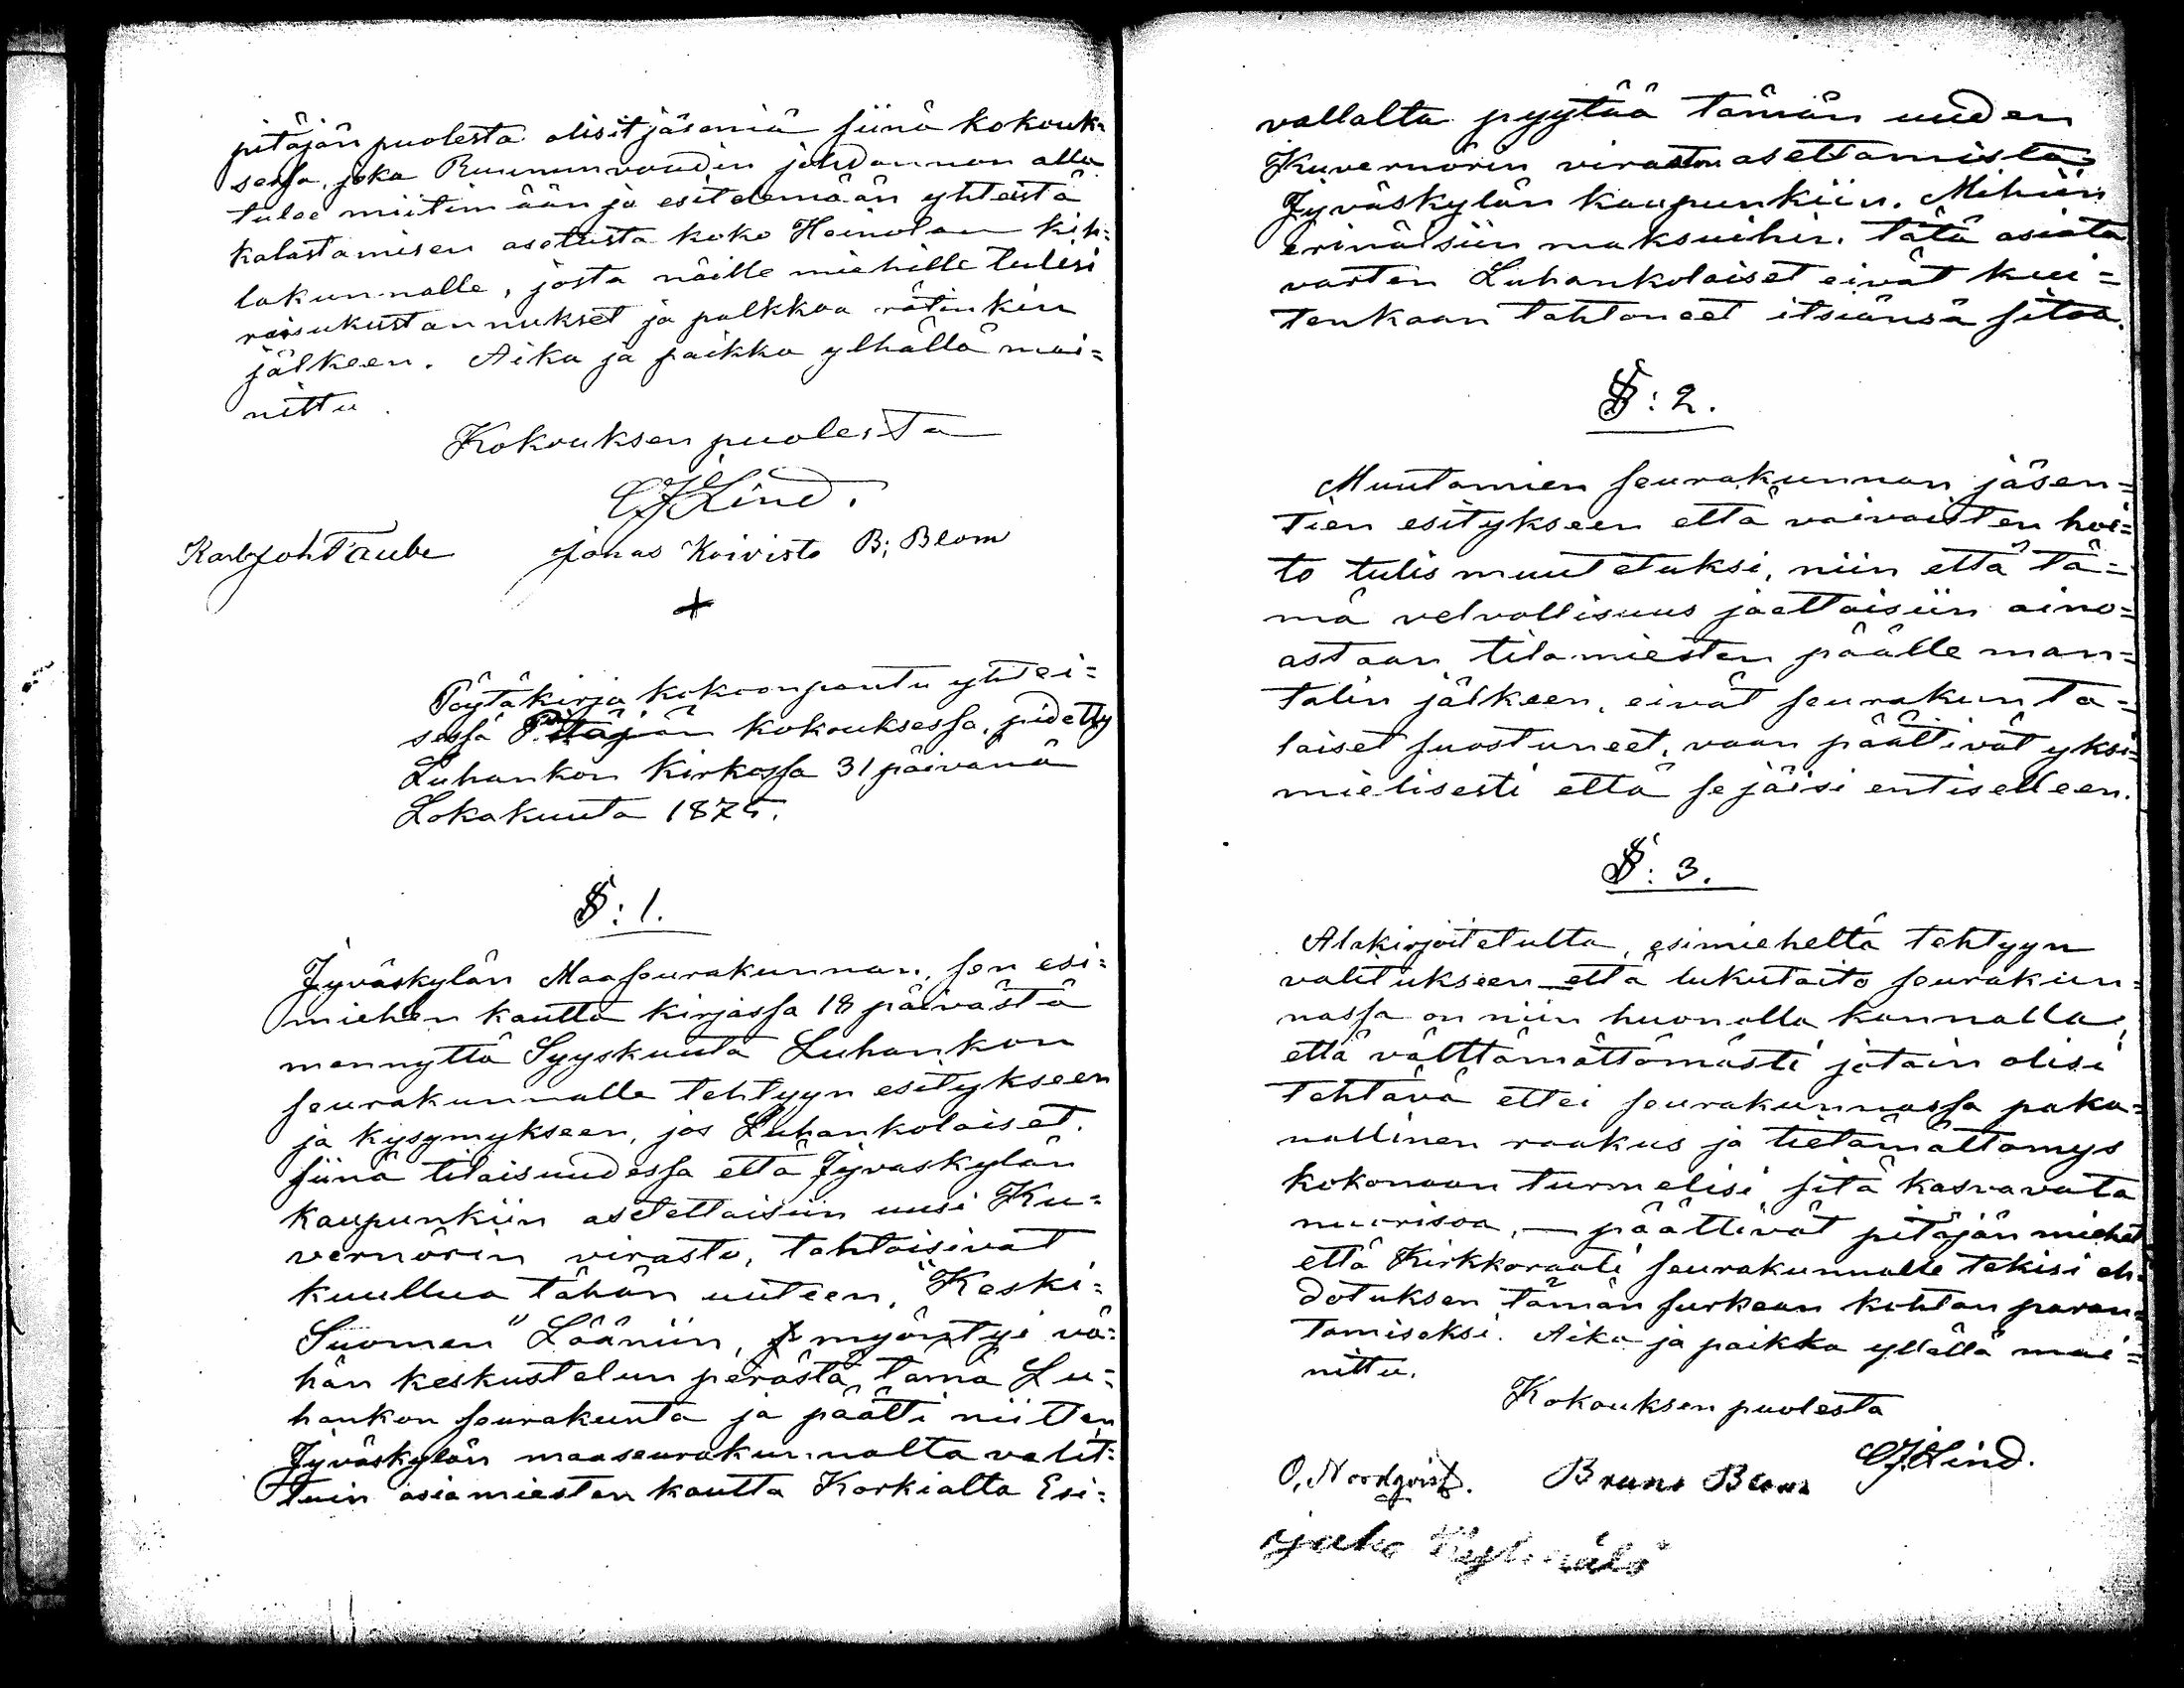 pitäjän puolesta olisit jäseniä siinä kokouk=
sessa, joka Ruununvoudin johdannon alla
tulee miitimään ja esitelemään yhteistä
kalastamisen asetusta koko Heinolan kih=
lakunnalle, josta näille miehille tulisi
raisukustannukset ja palkkaa rätinkin
jälkeen. Aika ja paikka ylhällä mai=
nittu.
Kokouksen puolesta
CJLind.
Karl Joh Taube Jonas Koivisto B; Blom
+
Pöytäkirja kokoonpantu yhtei=
sessä Pitäjän kokouksessa, pidetty
Luhankon Kirkossa 31 päivänä
Lokakuuta 1875.
§: 1.
Jyväskylän Maaseurakunnan, sen esi=
miehen kautta kirjassa 18 päivästä
mennyttä Syyskuuta Luhankon
seurakunnalle tehtyyn esitykseen
ja kysymykseen, jos Luhankolaiset.
siinä tilaisuudessa että Jyväskylän
kaupunkiin asetettaisiin uusi Ku=
vernörin virasto, tahtoisivat
kuullua tähän uuteen, "Keski=
Suomen" Lääniin, myöntyi vä=
hän keskustelun perästä tämä Lu=
hankon seurakunta ja päätti niitten
Jyväskylän maaseurakunnalta valit=
tuin asiamiesten kautta Korkialta Esi=
vallalta pyytää tämän uuden
Kuvernörin viraston asettamista
Jyväskylän kaupunkiin. Mihin
erinäisiin maksuihin. tätä asiata
varten Luhankolaiset eivät kui=
tenkaan tahtoneet itsiänsä sitoa.
§: 2.
Muutamien seurakunnan jäsen=
tien esitykseen että vaivaisten hoi=
to tulis muutetuksi, niin että tä=
mä velvollisuus jaettaisiin aino=
astaan tilamiesten päälle man=
talin jälkeen, eivät seurakunta=
laiset suostuneet, vaan päättivät yksi=
mielisesti että se jäisi entiselleen.
§: 3.
Alakirjoitetulta, esimieheltä tehtyyn
valitukseen että lukutaito seurakun=
nassa on niin huonolla kannalla,
että välttämättömästi jotain olisi
tehtävä ettei seurakunnassa paka=
nallinen raakus ja tietämättömys
kokonaan turmelisi sitä kasvavata
nuorisoa, — päättivät pitäjän miehet
että Kirkkoraati seurakunnalle tekisi eh=
dotuksen tämän surkean kohdan paran=
tamiseksi. Aika ja paikka ylhällä mai=
nittu.
Kokouksen puolesta
CJLind.
O. Nordqvist. Bruno Blom